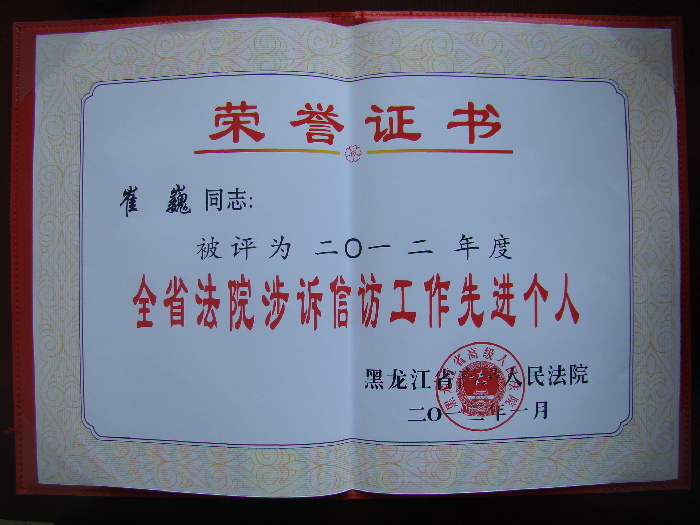 荣誉证书
崔 巍 同志:
被评为 二〇一二 年度
全省法院涉诉信访工作先进个人
黑龙江省高级人民法院
二〇一三年一月